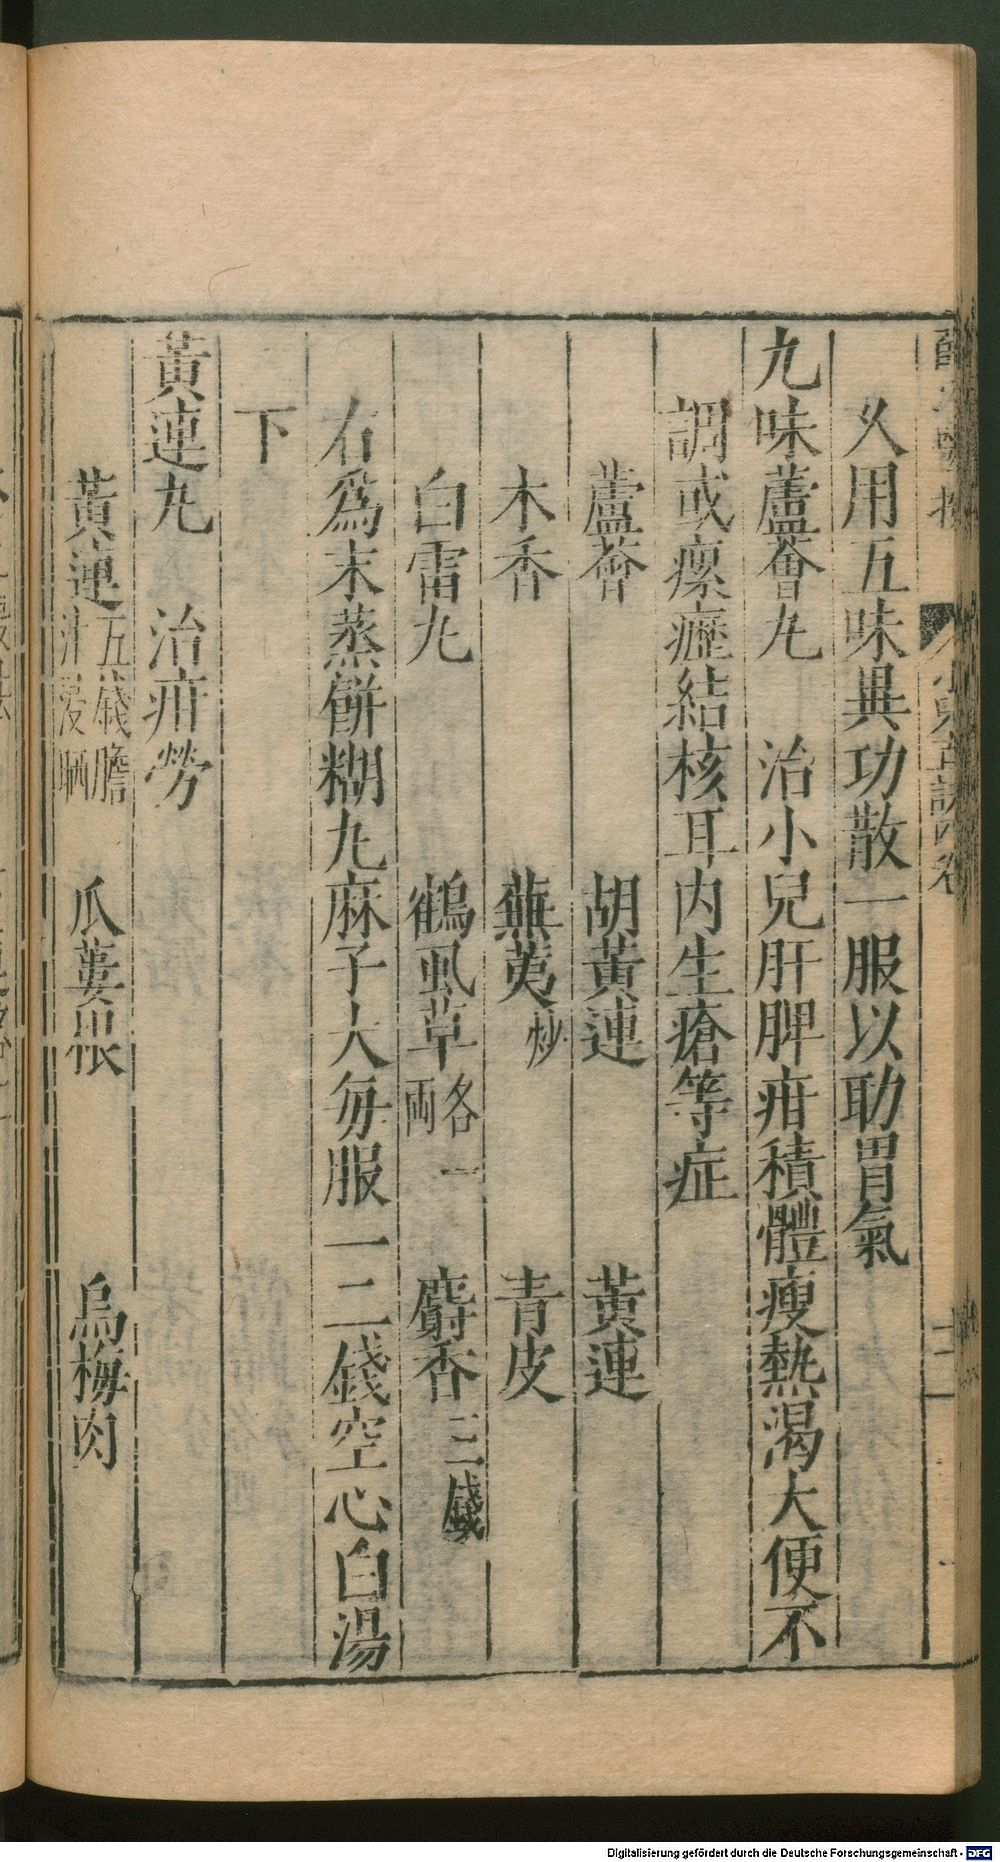 久用五味異功散一服以助胃氣
九味蘆薈丸　治小兒肝脾疳積體瘦熱渴大便不
調或瘰癧結核耳内生瘡等症
蘆薈　胡黃連　黃連
木香　蕪荑炒　青皮
白雷丸　鶴虱草各一両　麝香三錢
右爲末蒸餅糊丸麻子大毎服一二錢空心白湯
下
黃連丸　治疳勞
黃連五錢膽汁浸晒　瓜蔞根　烏梅肉
Digitalisierung gefördert durch die Deutsche Forschungsgemeinschaft - DFG